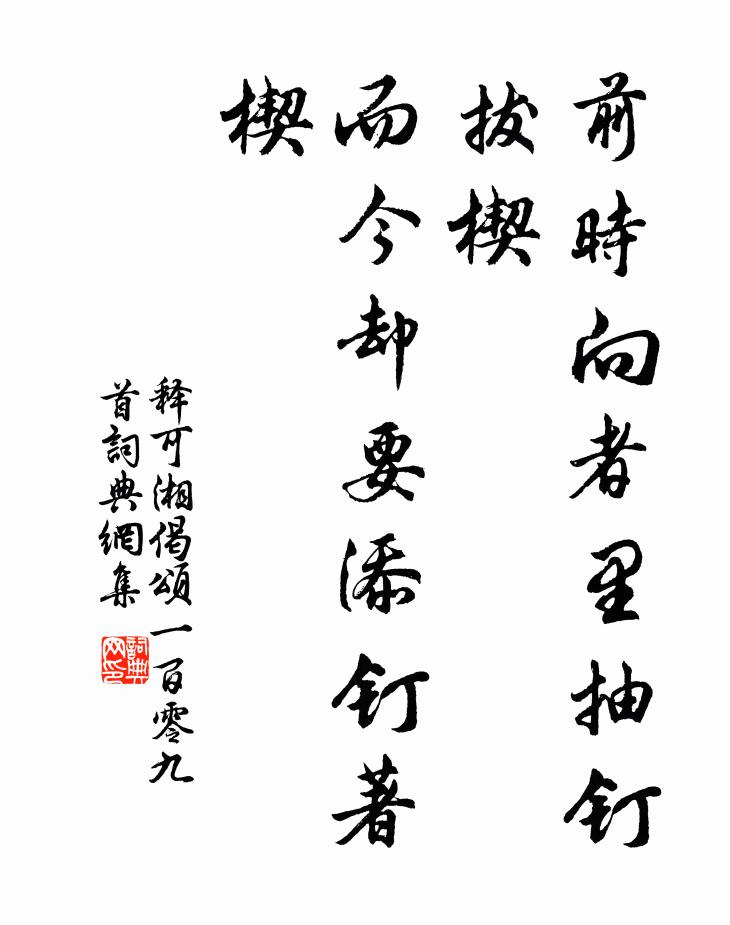 前時向者里抽釘
拔楔
而今却要添釘著
楔
释可湘偈頌一百零九
首詞典網集
詞典
网印